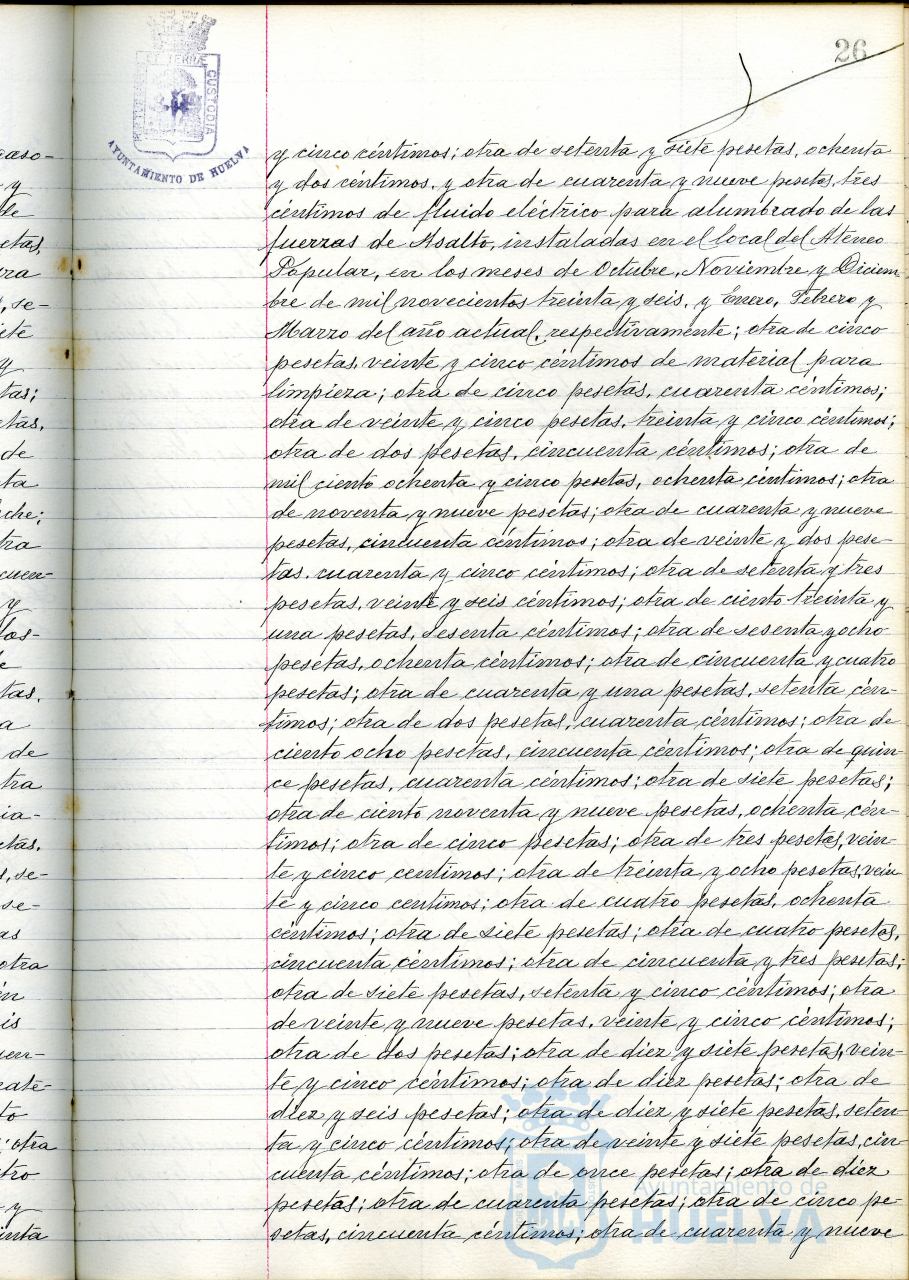 26
PORTUS MARIS ET TERRAE CUSTODIA
AYUNTAMIENTO DE HUELVA
y cinco céntimos; otra de setenta y siete pesetas, ochenta
y dos céntimos, y otra de cuarenta y nueve pesetas, tres
céntimos de fluido eléctrico para alumbrado de las
fuerzas de Asalto, instaladas en el local del Ateneo
Popular, en los meses de Octubre, Noviembre y Diciem
bre de mil novecientos treinta y seis, y Enero, Febrero y
Marzo del año actual, respectivamente; otra de cinco
pesetas, veinte y cinco céntimos de material para
limpieza; otra de cinco pesetas, cuarenta céntimos;
otra de veinte y cinco pesetas, treinta y cinco céntimos;
otra de dos pesetas, cincuenta céntimos; otra de
mil ciento ochenta y cinco pesetas, ochenta céntimos; otra
de noventa y nueve pesetas; otra de cuarenta y nueve
pesetas, cincuenta céntimos; otra de veinte y dos pese-
tas, cuarenta y cinco céntimos; otra de setenta y tres
pesetas, veinte y seis céntimos; otra de ciento treinta y
una pesetas, sesenta céntimos; otra de sesenta y ocho
pesetas, ochenta céntimos; otra de cincuenta y cuatro
pesetas; otra de cuarenta y una pesetas, setenta cén-
timos; otra de dos pesetas, cuarenta céntimos; otra de
ciento ocho pesetas, cincuenta céntimos; otra de quin-
ce pesetas, cuarenta céntimos; otra de siete pesetas;
otra de ciento noventa y nueve pesetas, ochenta cén-
timos; otra de cinco pesetas; otra de tres pesetas, vein-
te y cinco centimos; otra de treinta y ocho pesetas, vein
te y cinco centimos; otra de cuatro pesetas, ochenta
céntimos; otra de siete pesetas; otra de cuatro pesetas,
cincuenta céntimos; otra de cincuenta y tres pesetas;
otra de siete pesetas, setenta y cinco céntimos; otra
de veinte y nueve pesetas, veinte y cinco céntimos;
otra de dos pesetas; otra de diez y siete pesetas, vein-
te y cinco céntimos; otra de diez pesetas; otra de
diez y seis pesetas; otra de diez y siete pesetas, seten-
ta y cinco céntimos; otra de veinte y siete pesetas, cin-
cuenta céntimos; otra de once pesetas; otra de diez
pesetas; otra de cuarenta pesetas; otra de cinco pe-
setas, cincuenta céntimos; otra de cuarenta y nueve
Ayuntamiento de
HUELVA